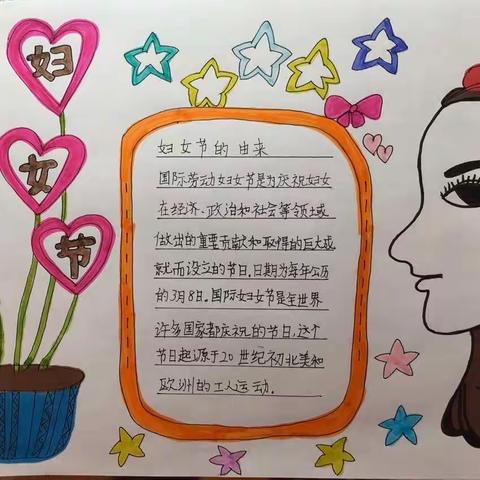 妇
女
节
妇女节的由来
国际劳动妇女节是为庆祝妇女
在经济、政治和社会等领域
做出的重要贡献和取得的巨大成
就而设立的节日,日期为每年公历
的3月8日。国际妇女节是在世界
许多国家都庆祝的节日。这个
节日起源于20世纪初北美和
欧洲的工人运动.